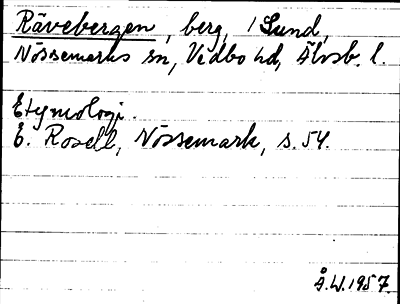 Rävebergen, berg, i Sund,
Nössemarks sn, Vedbo hd, Älvsb. l.
Etymologi.
E. Rosell, Nössemark, s. 54.
Å.W. 1957.